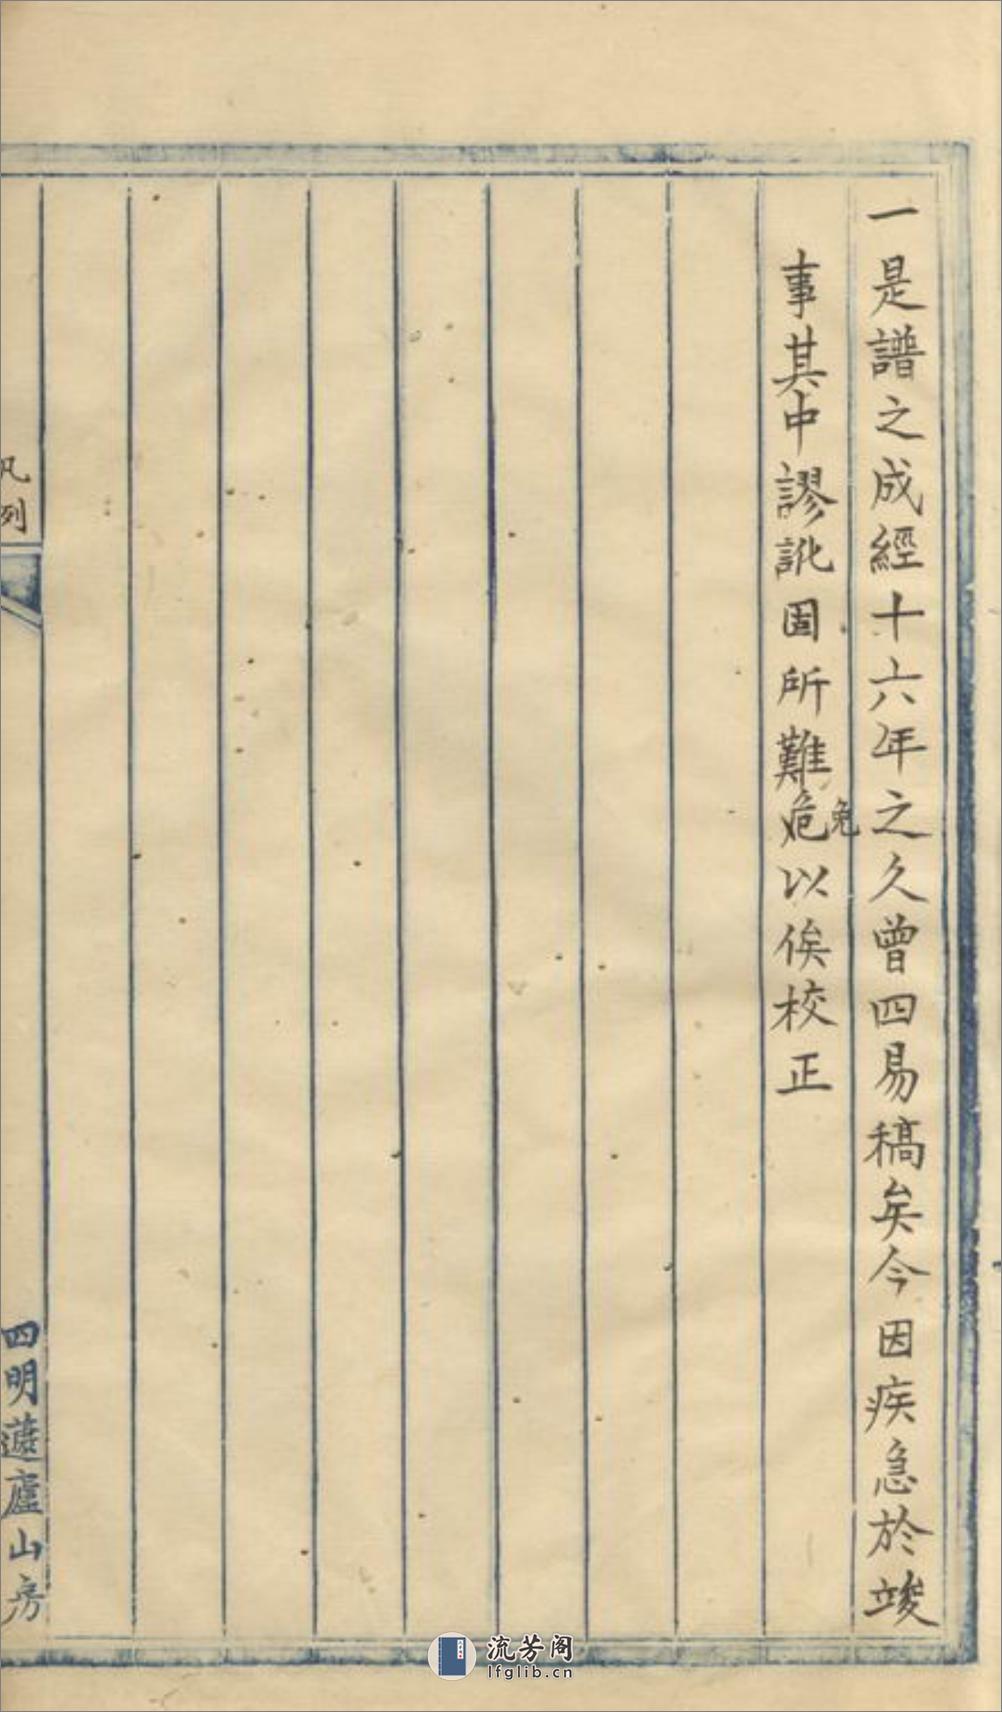 一是譜之成經十六年之久曾四易稿矣今因疾急於竣
事其中謬訛固所難危以俟校正
免
凡例
四明蘧廬山房
流芳阁
lfglib.cn